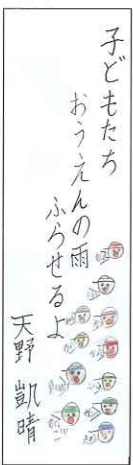 子どもたち
おうえんの雨
ふらせるよ
天野 凱晴